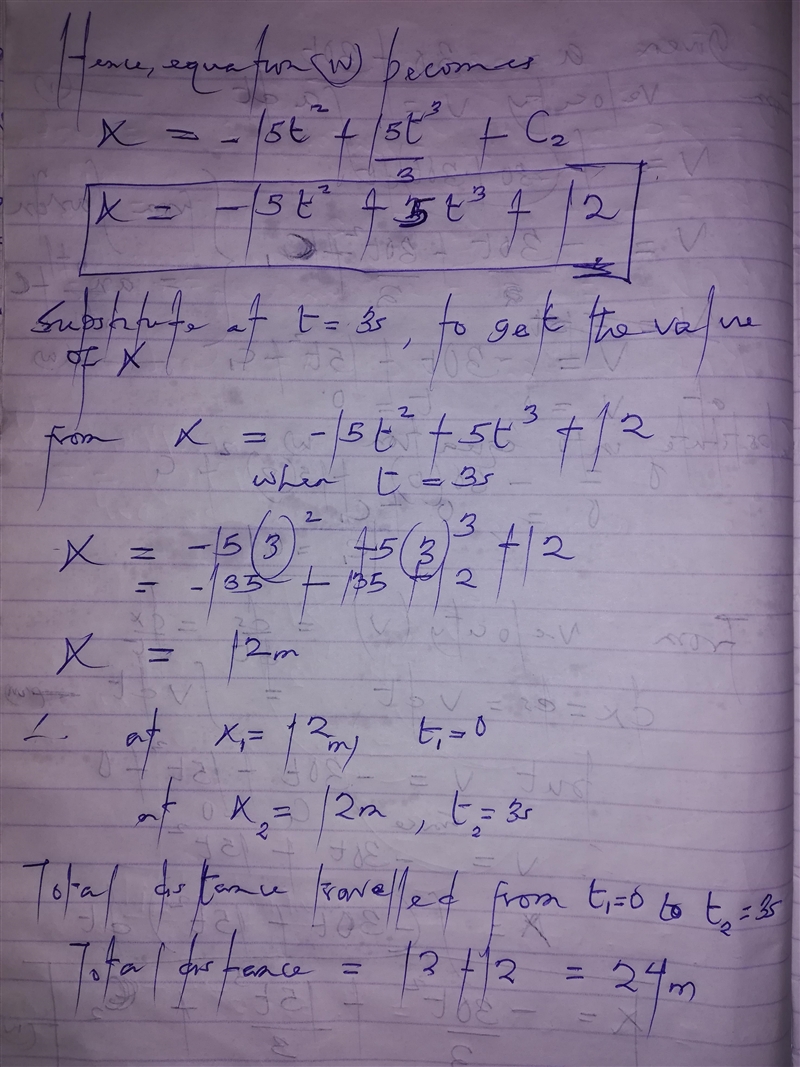 Hence, equation (iv) becomes
X = -15t² + 15t³/3 + C₂
X = -15t² + 5t³ + 12
Substitute at t = 3s, to get the value
of X
from X = -15t² + 5t³ + 12
when t = 3s
X = -15(3)² +5(3)³ +12
= -135 + 135 +12
X = 12m
∴ at x₁= 12m, t₁=0
at X₂= 12m, t₂=3s
Total distance travelled from t₁=0 to t₂=3s
Total distance = 12 +12 = 24m